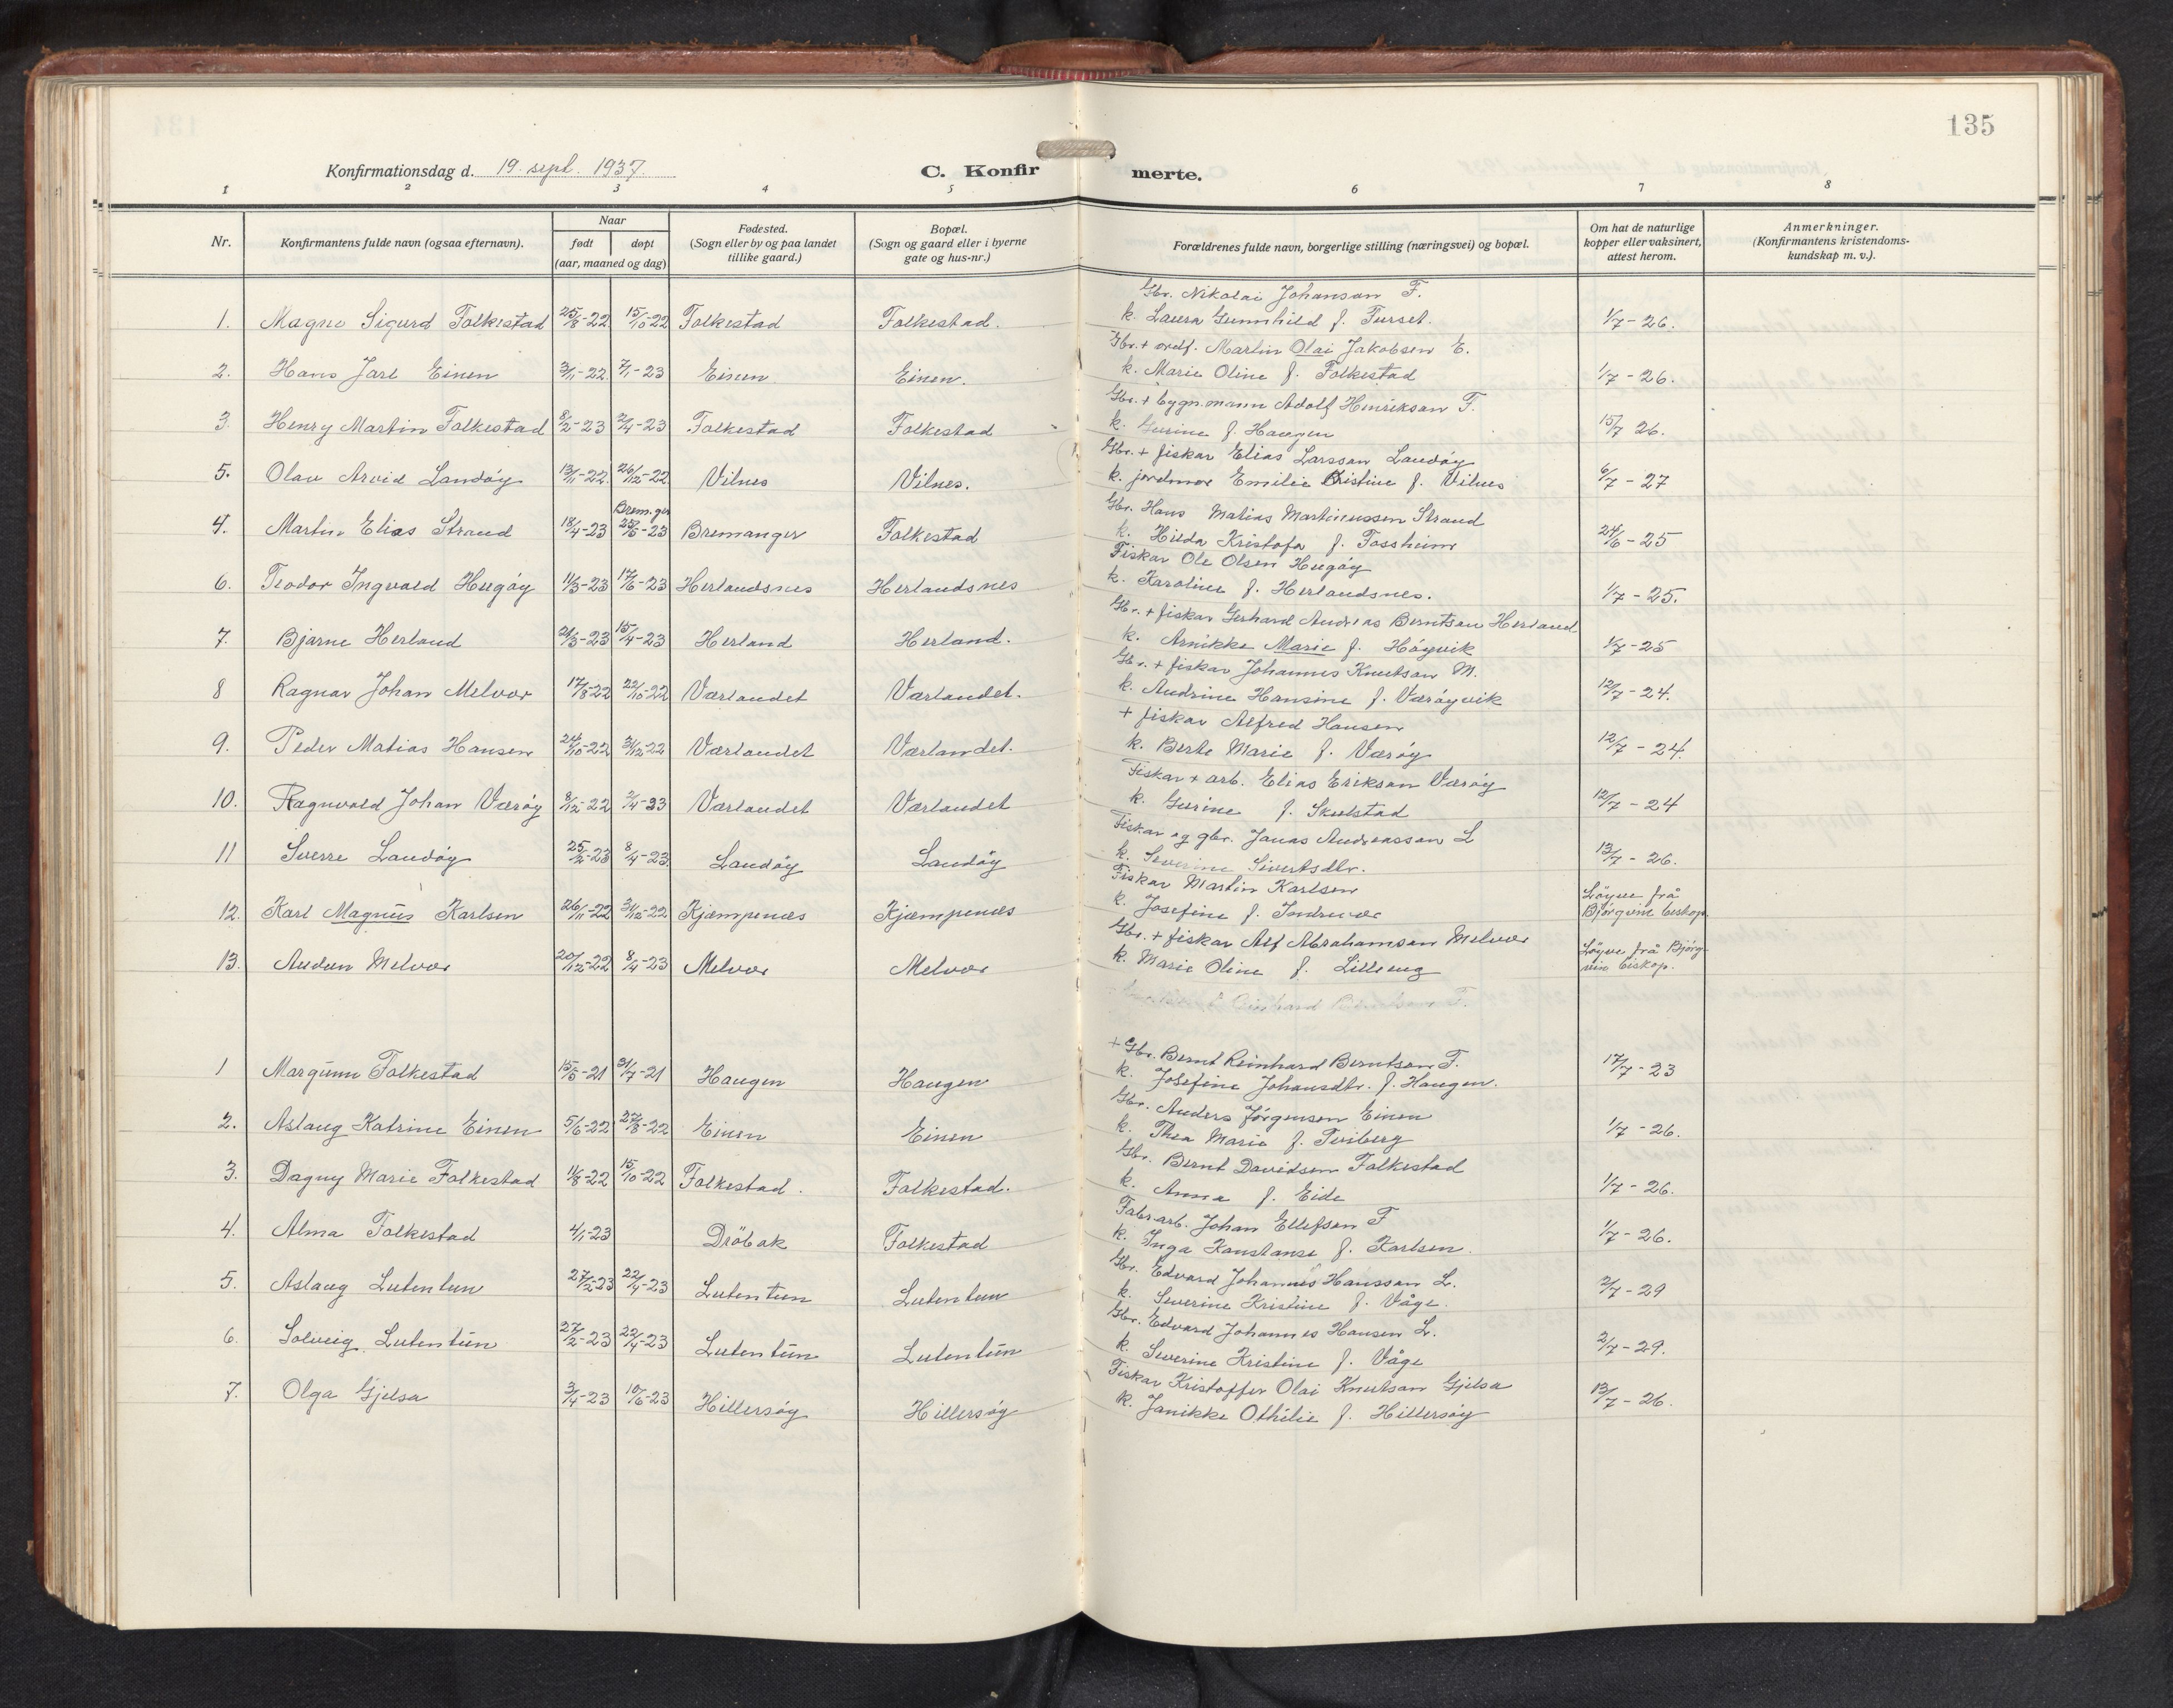 135
Konfirmationsdag d. 19. sept. 1937.
C. Konfir merte.
1 2 3 4 5 6 7 8
Nr.
Konfirmantens fulde navn (ogsaa efternavn).
Naar
født døpt
(aar, maaned og dag)
Fødested.
(Sogn eller by og paa landet
tillike gaard.)
Bopæl.
(Sogn og gaard eller i byerne
gate og hus-nr.)
Forældrenes fulde navn, borgerlige stilling (næringsvei) og bopæl.
Om hat de naturlige
kopper eller vaksinert,
attest herom.
Anmerkninger.
(Konfirmantens kristendoms-
kundskap m. v.).
Gbr. Nikolai Johanson F.
1. Magne Sigurd Folkestad 25/8-22 15/10-22 Folkestad Folkestad. k. Laura Gunnhild f. Furset. 1/7-26.
Gbr. + ordf. Martin Olai Jakobsen E.
2. Hans Jarl Einen 3/11-22. 7/1-23 Einen Einen. k. Marie Oline f. Folkestad 1/7-26.
Gbr. + bygn.mann Adolf Henrikson F.
3. Henry Martin Folkestad 8/2-23 2/4-23 Folkestad Folkestad k. Gurine f. Haugen 15/7 26.
Gbr. + fiskar Elias Larsson Landøy
5. Olav Arvid Landøy 13/11-22. 26/12-22 Vilnes Vilnes. k. jordmor Emilie Kristine f. Vilnes 6/7-27
Brem.ger
Gbr. Hans Matias Martinussen Strand
4. Martin Elias Strand 18/4-23 -23 Bremanger Folkestad k. Hilda Kristofa f. Fossheim 24/6-25
Fiskar Ole Olsen Hugøy
6. Teodor Ingvald Hugøy 11/3-23 17/6-23 Herlandsnes Herlandsnes k. Karoline f. Herlandsnes. 1/7-25.
Gbr. + fiskar Gerhard Andreas Berntsen Herland
7. Bjarne Herland 21/3-23 15/4-23 Herland Herland. k. Arnikke Marie f. Høyvik 1/7-25
Gbr. + fiskar Johannes Knutson M.
8 Ragnar Johan Melvær 17/8-22 22/10-22 Værlandet Værlandet. k. Andrine Hansine f. Værøyvik 12/7-24.
+ fiskar Alfred Hansen
9. Peder Matias Hansen 24/10-22 31/12-22 Værlandet Værlandet. k. Berte Marie f. Værøy 12/7-24.
Fiskar + arb. Elias Erikson Værøy
10. Ragnvald Johan Værøy 8/12-22 2/4-23 Værlandet Værlandet k. Gurine f. Skulstad 12/7-24
Fiskar og gbr. Jonas Andreasson L
11 Sverre Landøy 25/2-23 8/4-23 Landøy Landøy k. Severine Sivertsdtr. 13/7-26.
Fiskar Martin Karlsen
12. Karl Magnus Karlsen 26/11-22 31/12-22 Kjæmpenæs Kjæmpenæs k. Josefine f. Indrevær Løyve frå
Bjørgvin biskop.
Gbr. + fiskar Alf Abrahamsen Melvær
13. Audun Melvær 20/12-22 8/4-23 Melvær Melvær k. Marie Oline f. Lilleeng Løyve frå Bjørg-
vin biskop.
+ Gbr. Bernt Reinhard Berntson F.
1 Margunn Folkestad 15/5-21 31/7-21 Haugen Haugen k. Josefine Johansdtr. f. Haugen. 17/7-23
Gbr. Anders Jørgensen Einen
2. Aslaug Katrine Einen 5/6-22 27/8-22 Einen Einen k. Thea Marie f. Tviberg 1/7-26.
Gbr. Bernt Davidsen Folkestad
3. Dagny Marie Folkestad 11/8-22 15/10-22 Folkestad. Folkestad. k. Anna f. Eide 1/7-26.
Fabr.arb. Johan Ellefsen F
4. Alma Folkestad 4/1-23 Drøbak Folkestad k. Inga Konstanse f. Karlsen. 1/7-26.
Gbr. Edvard Johannes Hansson L.
5. Aslaug Lutentun 27/2-23 22/4-23 Lutentun Lutentun k. Severine Kristine f. Våge. 2/7-29
Gbr. Edvard Johannes Hansen L.
6. Solveig Lutentun 27/2-23 22/4-23 Lutentun Lutentun k. Severine Kristine f. Våge 2/7-29.
Fiskar Kristoffer Olai Knutson Gjelsa
7. Olga Gjelsa 3/4-23 10/6-23 Hillersøy Hillersøy k. Janikke Othilie f. Hillersøy 13/7-26.